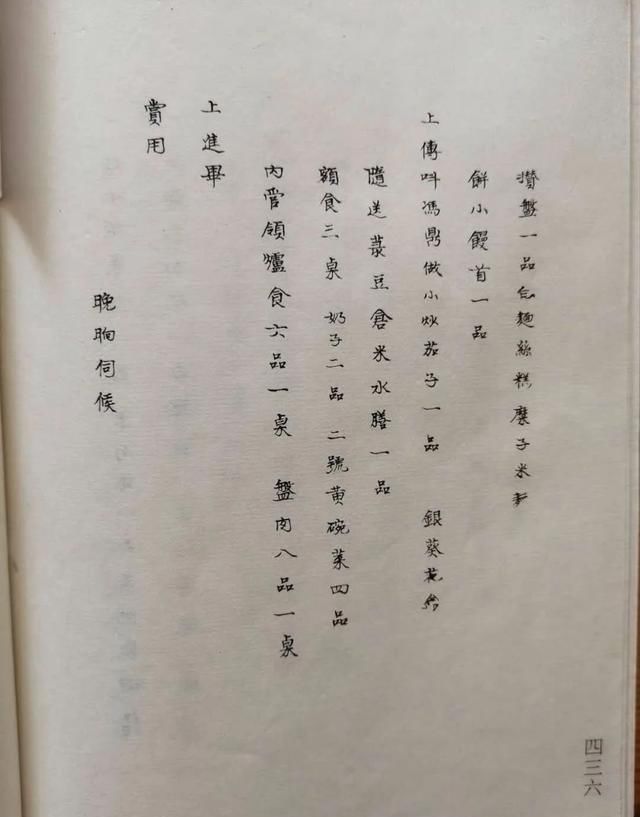 攢盤一品 白麵絲糕糜子米麫
餅小饅首一品
上傳呌馮鼎做小炒茄子一品 銀葵花盒
隨送菉豆倉米水膳一品
額食三桌 奶子二品 二號黃碗菜四品
內管領爐食六品一桌 盤肉八品一桌
上進畢
賞用
晚晌伺候
四三六